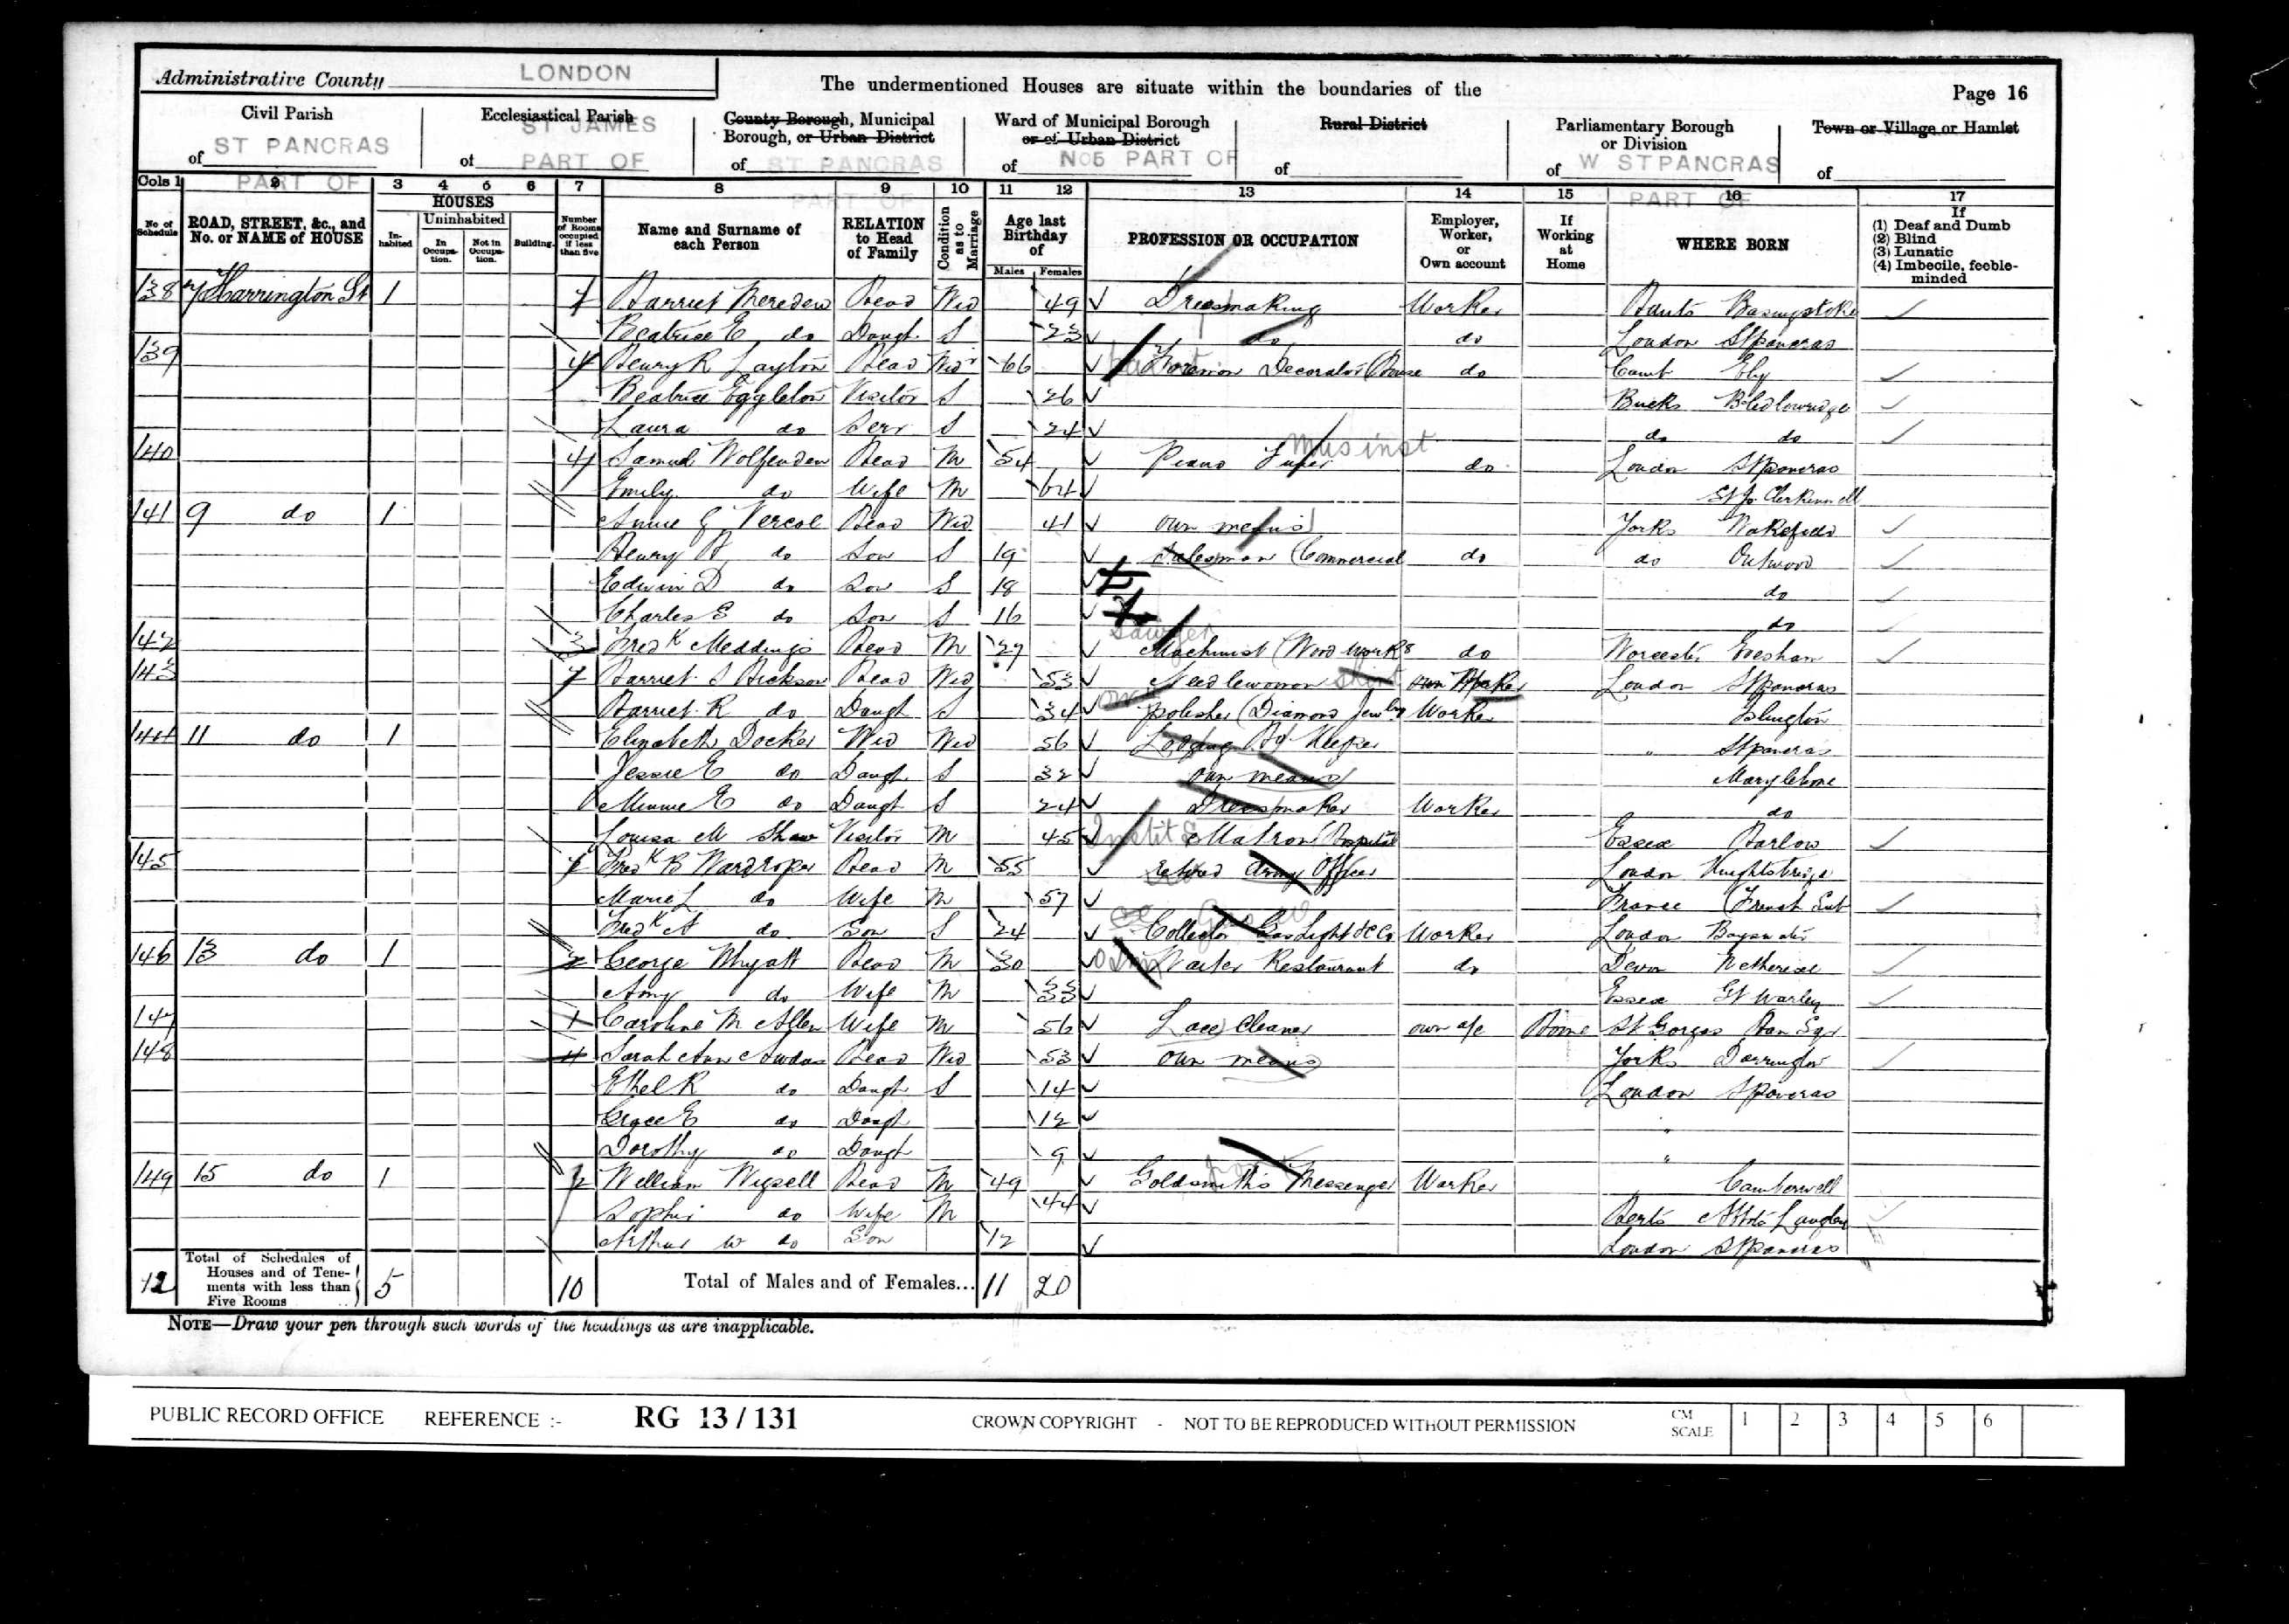 Administrative County LONDON
The undermentioned Houses are situate within the boundaries of the
Page 16
Civil Parish of ST PANCRAS PART OF
Ecclesiastical Parish of ST JAMES PART OF
County Borough, Municipal Borough, or Urban District of ST PANCRAS PART OF
Ward of Municipal Borough or of Urban District of No5 PART OF
Rural District of
Parliamentary Borough or Division of W ST PANCRAS PART OF
Town or Village or Hamlet of
Cols 1 2 3 4 5 6 7 8 9 10 11 12 13 14 15 16 17
No of Schedule
ROAD, STREET, &c., and No. or NAME of HOUSE
HOUSES
Inhabited
Uninhabited
In Occupation.
Not in Occupation.
Building.
Number of Rooms occupied if less than five
Name and Surname of each Person
RELATION to Head of Family
Condition as to Marriage
Age last Birthday of
Males Females
PROFESSION OR OCCUPATION
Employer, Worker, or Own account
If Working at Home
WHERE BORN
If
(1) Deaf and Dumb
(2) Blind
(3) Lunatic
(4) Imbecile, feeble-minded
138 7 Harrington St 1 Harriet Head Wid 49 Dressmaking Worker Hants Basingstoke
Beatrice E do Daugh S 23 do do London St Pancras
139 4 Henry R Layton Head Widr 66 Foreman Decorator (House do Camb Ely
Beatrice Eggleton Visitor S 26 Bucks Bledlowridge
Laura do Serv S 24 do do
140 4 Samuel Wolfenden Head M 54 Piano Tuner Mus inst do London St Pancras
Emily do Wife M 64 St Js Clerkenwell
141 9 do 1 Annie G Vercoe Head Wid 41 own means Yorks Wakefield
Henry A do Son S 19 Salesman (Commercial do do Outwood
Edwin D do Son S 18 do
Charles E do Son S 16 do
142 3 Fredk Meddings Head M 27 Sawyer Machinist (Wood Works do Worcester Evesham
143 Harriet S Hickson Head Wid 53 Needlewoman Shirt own Worker London St Pancras
Harriet R do Daugh S 34 polisher (Diamond Jewlry Worker Islington
144 11 do 1 Elizabeth Docker Wid Wid 56 Lodging Ho Keeper " St Pancras
Jessie E do Daugh S 32 own means Marylebone
Minnie E do Daugh S 24 Dressmaker Worker do
Louisa M Shaw Visitor M 45 Matron Hospital Essex Harlow
145 Fredk B Wardroper Head M 55 Retired Army Officer London Knightsbridge
Marie L do Wife M 57 France (French Sub
Fredk A do Son S 24 Collector Gas Light & C Co Worker London Bayswater
146 13 do 1 2 George Whyatt Head M 30 Waiter Restaurant do Devon
Amy do Wife M 33 Essex Gt Warley
147 1 Caroline M Allen Wife M 56 Lace Cleaner own a/c Home St Georges Han Sqr
148 4 Sarah Ann Head Wid 53 own means Yorks Darrington
Ethel R do Daugh S 14 London St Pancras
Grace E do Daugh 12 "
Dorothy do Daugh 9 "
149 15 do 1 2 William Wigsell Head M 49 Goldsmiths Messenger Worker Camberwell
Sophie do Wife M 44 Herts Abbots Langley
Arthur W do Son 12 London St Pancras
12 Total of Schedules of Houses and of Tenements with less than Five Rooms 5 10 Total of Males and of Females... 11 20
NOTE—Draw your pen through such words of the headings as are inapplicable.
PUBLIC RECORD OFFICE REFERENCE :- RG 13/131 CROWN COPYRIGHT - NOT TO BE REPRODUCED WITHOUT PERMISSION CM SCALE 1 2 3 4 5 6